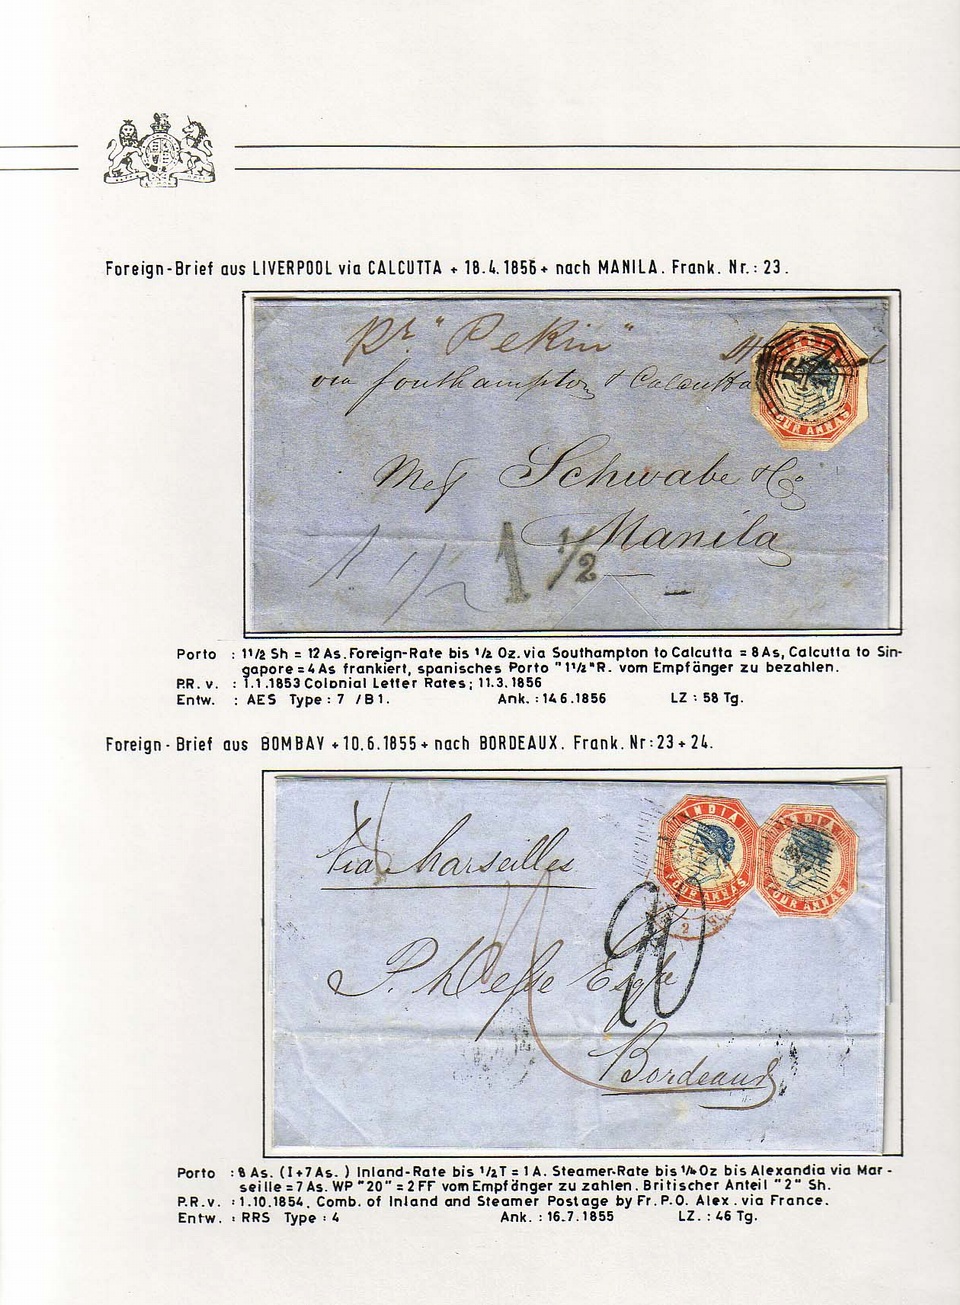 Foreign-Brief aus LIVERPOOL via CALCUTTA + 18.4.1856 + nach MANILA. Frank. Nr.: 23.
pr "Pekin"
via Southampton & Calcutta
FOUR ANNAS
Schwabe & Co
Manila
1 1/2
1 1/2
Porto : 1 1/2 Sh = 12 As. Foreign-Rate bis 1/2 Oz. via Southampton to Calcutta = 8 As, Calcutta to Sin-
gapore = 4 As frankiert, spanisches Porto "1 1/2" R. vom Empfänger zu bezahlen.
P.R. v. : 1.1.1853 Colonial Letter Rates; 11.3.1856
Entw. : AES Type : 7 / B1. Ank. : 14.6.1856 LZ : 58 Tg.
Foreign-Brief aus BOMBAY + 10.6.1855 + nach BORDEAUX. Frank. Nr: 23 + 24.
INDIA INDIA
FOUR ANNAS FOUR ANNAS
via Marseilles
Bordeaux
Porto : 8 As. (I+7As.) Inland-Rate bis 1/2 T = 1 A. Steamer-Rate bis 1/4 Oz bis Alexandia via Mar-
seille = 7 As. WP "20" = 2 FF vom Empfänger zu zahlen. Britischer Anteil "2" Sh.
P.R.v. : 1.10.1854. Comb. of Inland and Steamer Postage by Fr. P.O. Alex. via France.
Entw. : RRS Type : 4 Ank. : 16.7.1855 LZ. : 46 Tg.